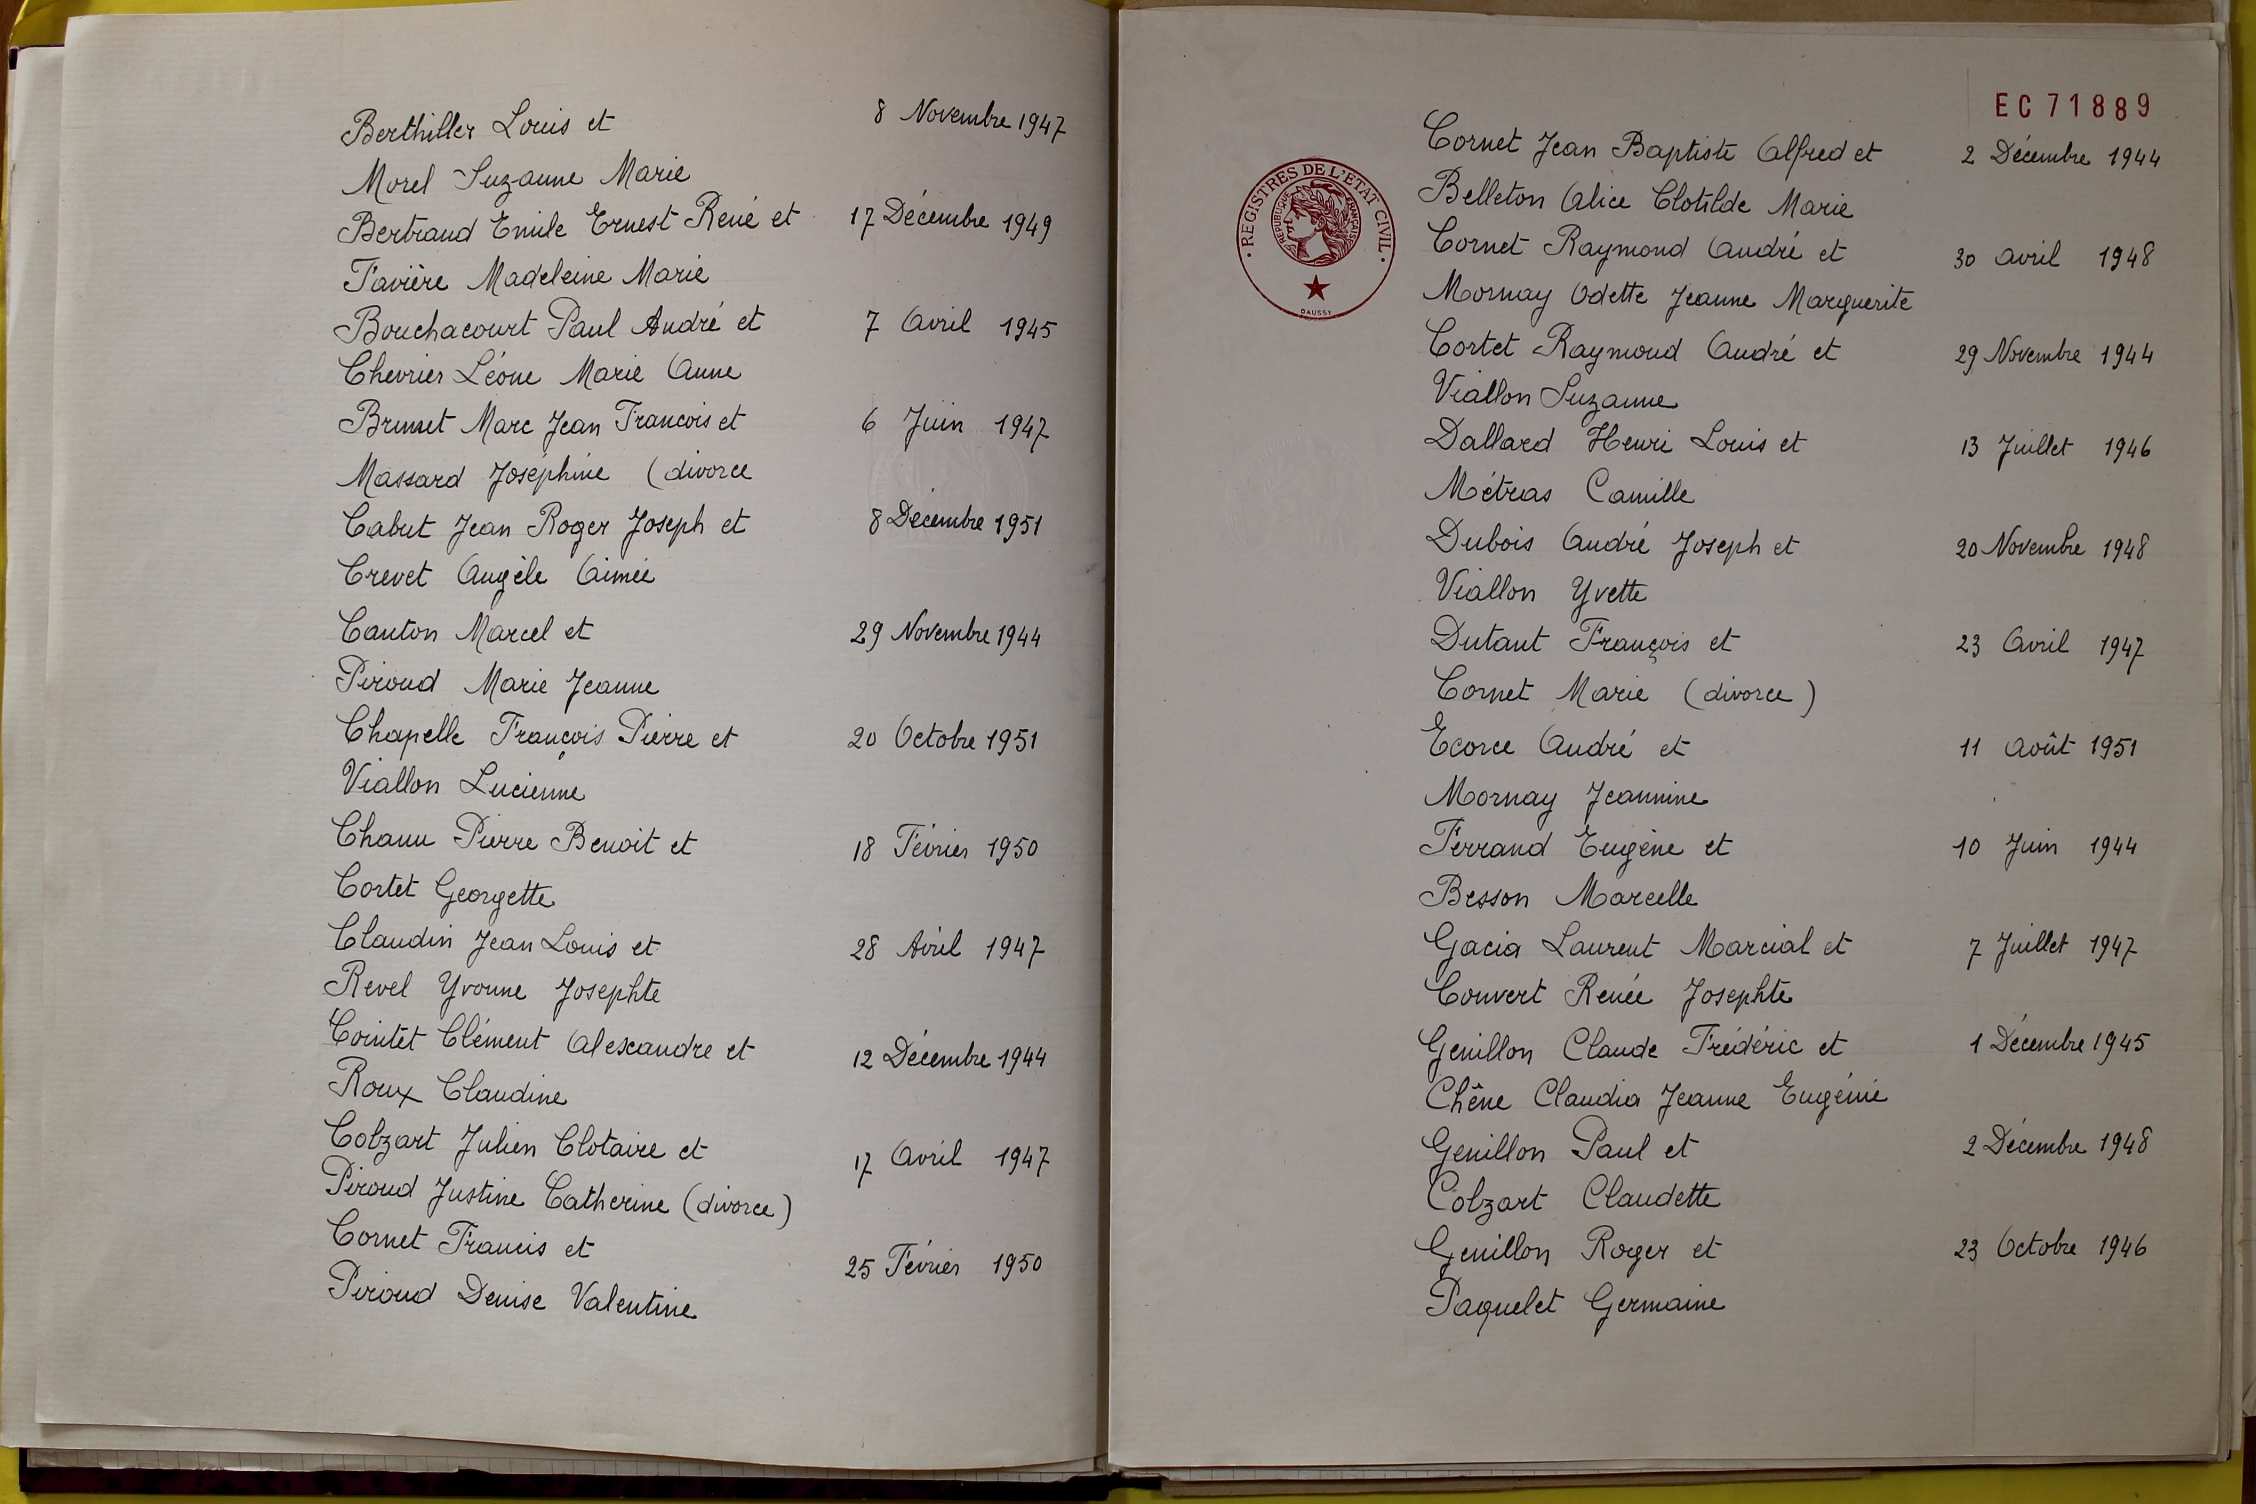 Berthillier Louis et 8 Novembre 1947
Morel Suzanne Marie
Bertrand Emile Ernest René et 17 Décembre 1949
Favière Madeleine Marie
Bouchacourt Paul André et 7 Avril 1945
Chevrier Léone Marie Anne
Brunet Marc Jean Francois et 6 Juin 1947
Massard Joséphine (divorce
Cabut Jean Roger Joseph et 8 Décembre 1951
Crevet Angèle Aimée
Canton Marcel et 29 Novembre 1944
Piroud Marie Jeanne
Chapelle François Pierre et 20 Octobre 1951
Viallon Lucienne
Chanu Pierre Benoit et 18 Février 1950
Cortet Georgette
Claudin Jean Louis et 28 Avril 1947
Revel Yvonne Josephte
Cointet Clément Alexandre et 12 Décembre 1944
Roux Claudine
Cobzart Julien Clotaire et 17 Avril 1947
Piroud Justine Catherine (divorce)
Cornet Francis et 25 Février 1950
Piroud Denise Valentine
EC 71889
REGISTRES DE L'ETAT CIVIL
REPUBLIQUE FRANÇAISE
DAUSSY
Cornet Jean Baptiste Alfred et 2 Décembre 1944
Belleton Alice Clotilde Marie
Cornet Raymond André et 30 avril 1948
Mornay Odette Jeanne Marguerite
Cortet Raymond André et 29 Novembre 1944
Viallon Suzanne
Dallard Henri Louis et 13 Juillet 1946
Métras Camille
Dubois André Joseph et 20 Novembre 1948
Viallon Yvette
Dutant François et 23 Avril 1947
Cornet Marie (divorce)
Ecorce André et 11 août 1951
Mornay Jeannine
Ferrand Eugène et 10 Juin 1944
Besson Marcelle
Gacia Laurent Marcial et 7 Juillet 1947
Convert Renée Josephte
Genillon Claude Frédéric et 1 Décembre 1945
Chêne Claudia Jeanne Eugénie
Genillon Paul et 2 Décembre 1948
Cobzart Claudette
Genillon Roger et 23 Octobre 1946
Paquelet Germaine